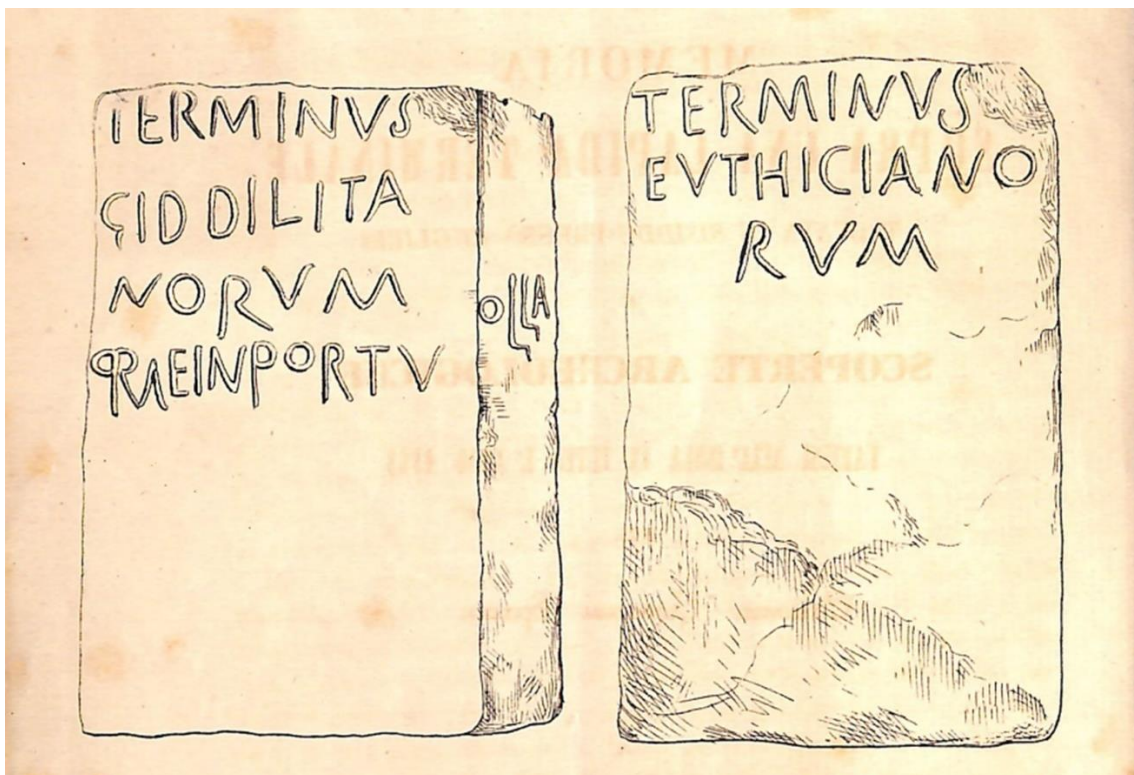 TERMINVS
GIDDILITA
NORVM
PRAEINPORTV
OLLA
TERMINVS
EVTHICIANO
RVM